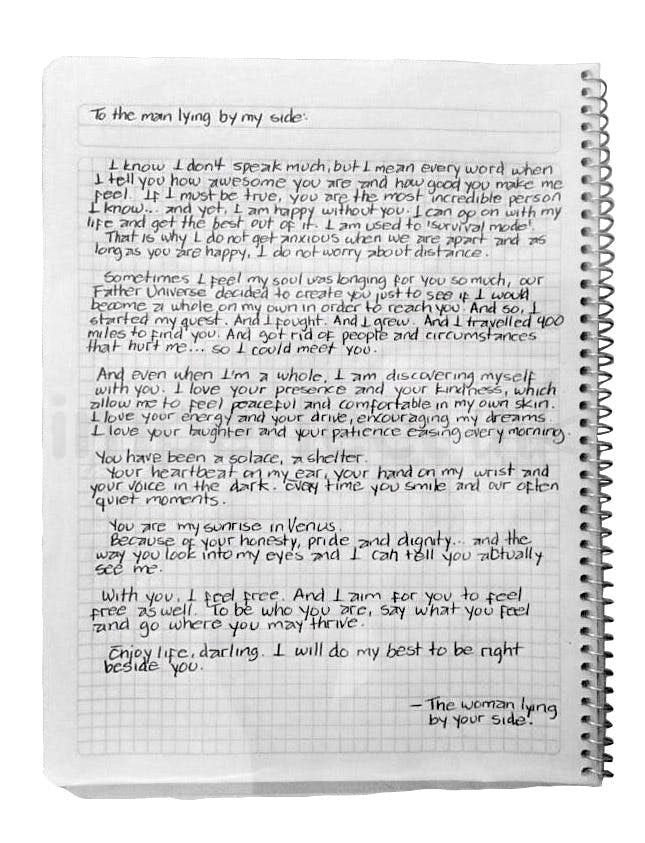 To the man lying by my side:
I know I don't speak much, but I mean every word when
I tell you how awesome you are and how good you make me
feel. If I must be true, you are the most incredible person
I know... and yet, I am happy without you. I can go on with my
life and get the best out of it. I am used to 'survival mode'.
That is why I do not get anxious when we are apart and as
long as you are happy, I do not worry about distance.
Sometimes I feel my soul was longing for you so much, our
Father Universe decided to create you just to see if I would
become a whole on my own in order to reach you. And so, I
started my quest. And I fought. And I grew. And I travelled 400
miles to find you. And got rid of people and circumstances
that hurt me... so I could meet you.
And even when I'm a whole, I am discovering myself
with you. I love your presence and your kindness, which
allow me to feel peaceful and comfortable in my own skin.
I love your energy and your drive, encouraging my dreams.
I love your laughter and your patience easing every morning.
You have been a solace, a shelter.
Your heartbeat on my ear, your hand on my wrist and
your voice in the dark. Every time you smile and our often
quiet moments.
You are my sunrise in Venus.
Because of your honesty, pride and dignity... and the
way you look into my eyes and I can tell you actually
see me.
With you, I feel free. And I aim for you to feel
free as well. To be who you are, say what you feel
and go where you may thrive.
Enjoy life, darling. I will do my best to be right
beside you.
— The woman lying
by your side.